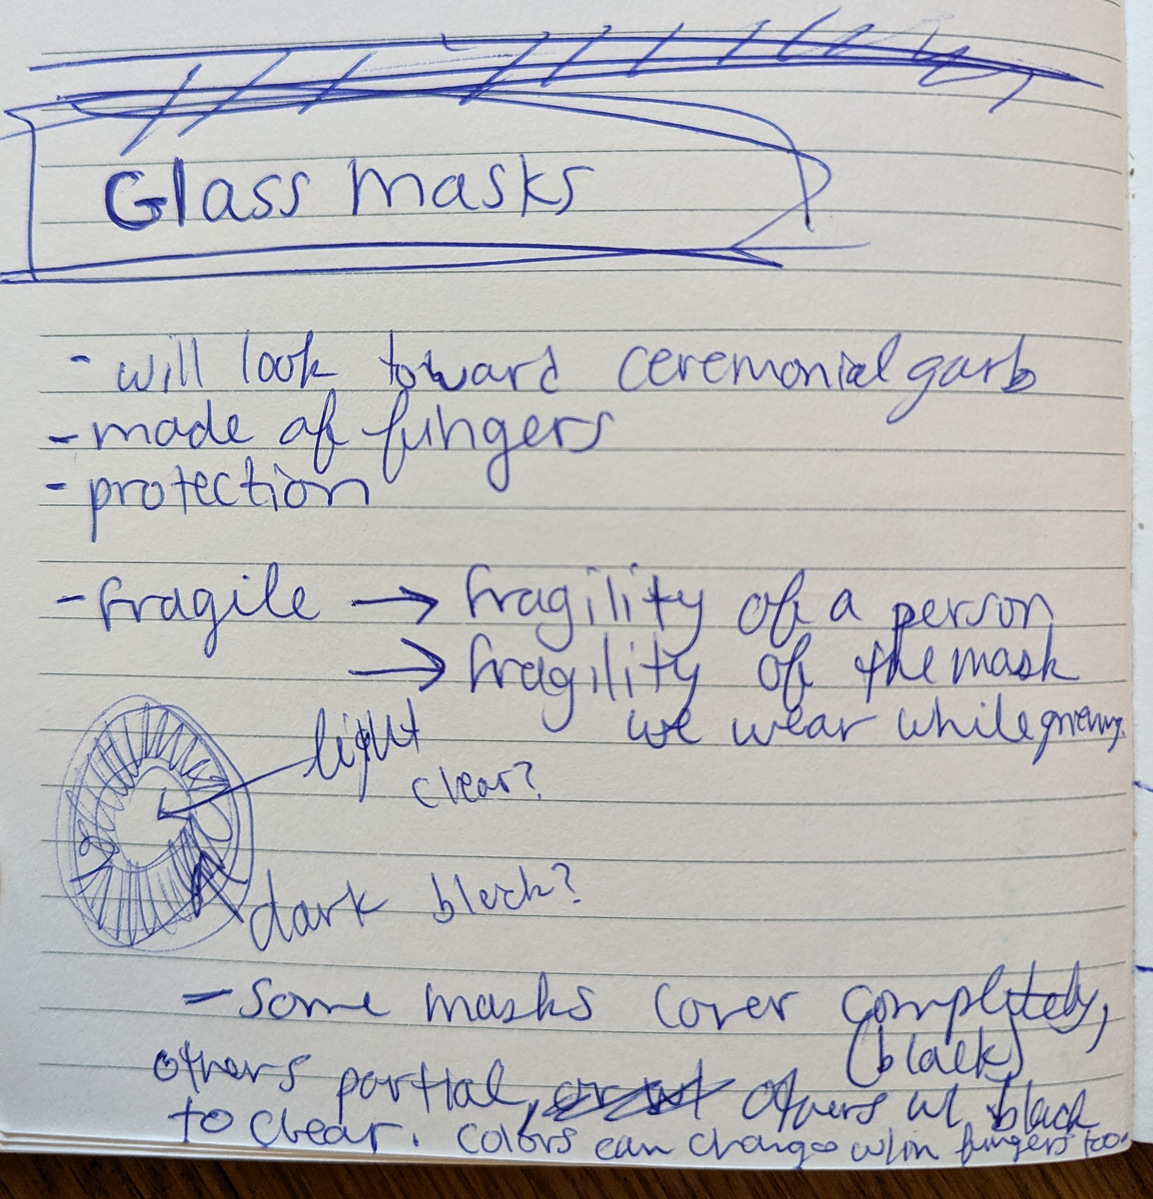 Glass masks
- will look toward ceremonial garb
- made of fungers
- protection
- fragile → fragility of a person
→ fragility of the mask
we wear while grieving.
light
clear?
dark black?
- Some masks cover completely,
(black)
others partial, others w/ black
to clear. Colors can change w/in fungers too.